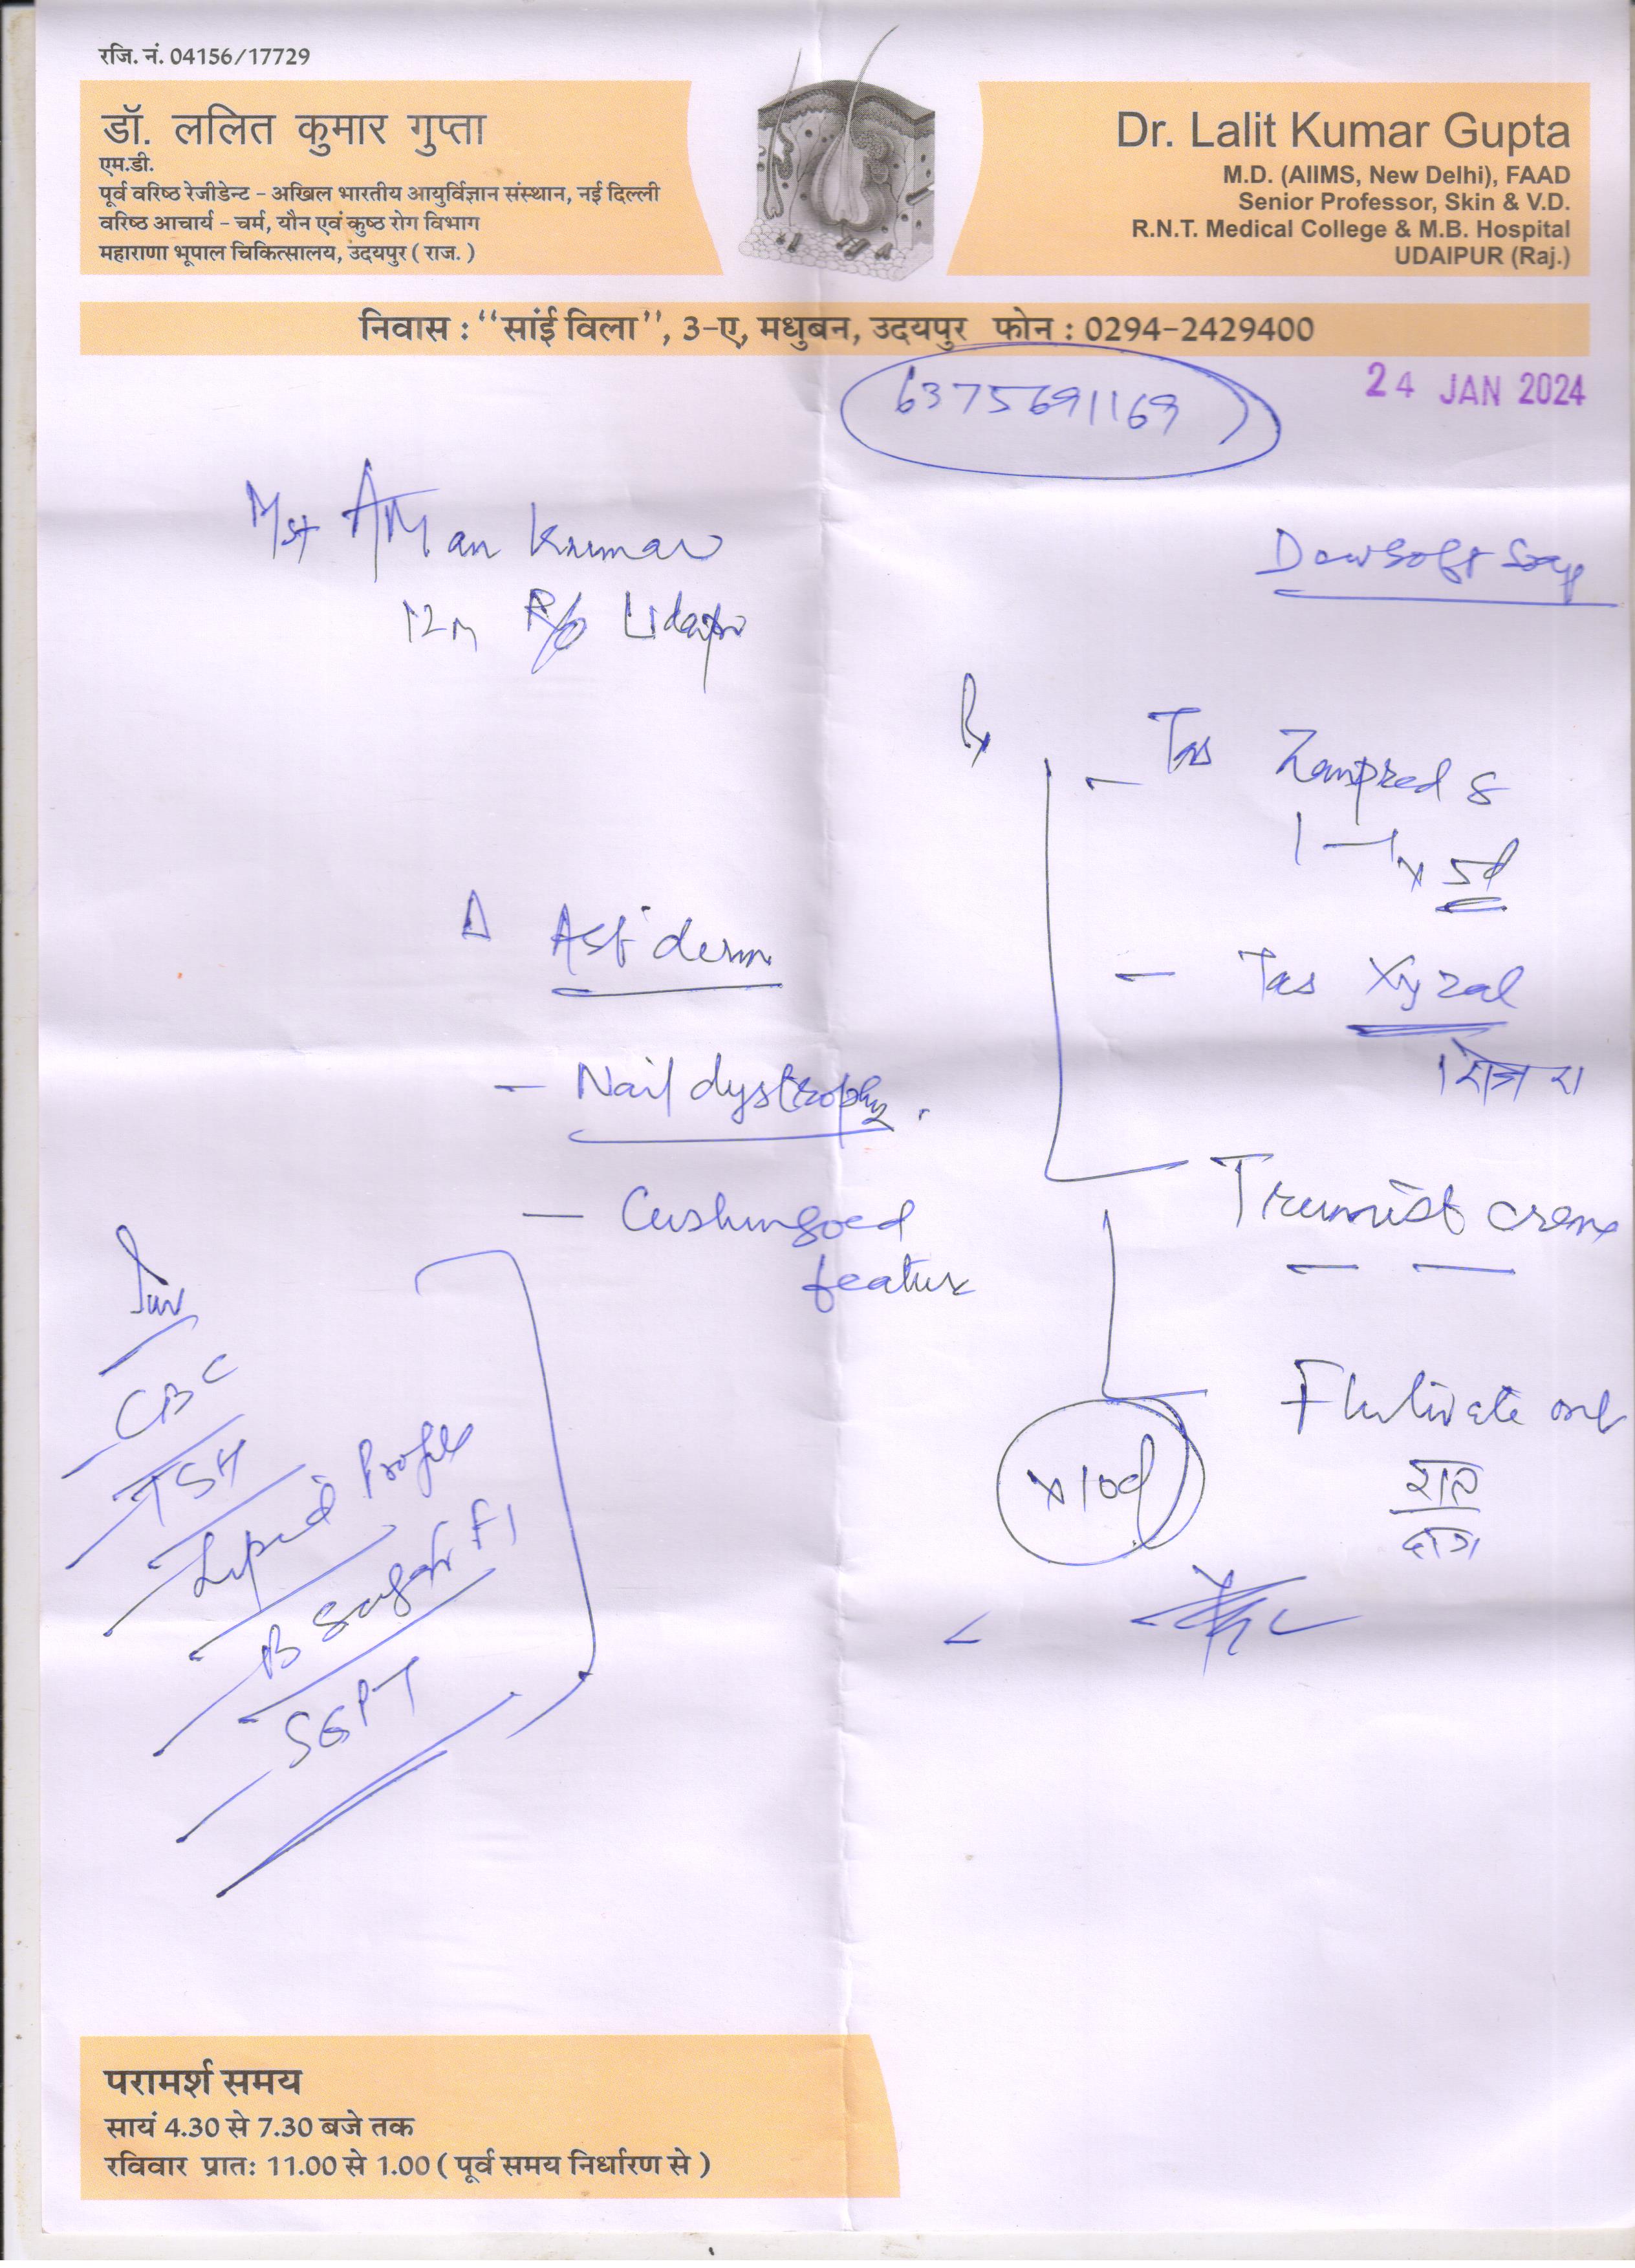 रजि. नं. 04156/17729
डॉ. ललित कुमार गुप्ता
एम.डी.
पूर्व वरिष्ठ रेजीडेन्ट - अखिल भारतीय आयुर्विज्ञान संस्थान, नई दिल्ली
वरिष्ठ आचार्य - चर्म, यौन एवं कुष्ठ रोग विभाग
महाराणा भूपाल चिकित्सालय, उदयपुर ( राज. )
Dr. Lalit Kumar Gupta
M.D. (AIIMS, New Delhi), FAAD
Senior Professor, Skin & V.D.
R.N.T. Medical College & M.B. Hospital
UDAIPUR (Raj.)
निवास : "सांई विला", 3-ए, मधुबन, उदयपुर फोन : 0294-2429400
6375691169
24 JAN 2024
Mst AMan Kumar
12m R/o Udaipur
Dewsoft Soap
Rx
- Tab Zempred 8
1-1 x 5d
- Tab Xyzal
1 रोज रा
Δ derm
- Nail dystrophy.
- Cushingoed
feature
cream
Flutivate oint
रात
x 10d
Inv
CBC
TSH
Lipid Profile
B Sugar F
SGPT
परामर्श समय
सायं 4.30 से 7.30 बजे तक
रविवार प्रातः 11.00 से 1.00 ( पूर्व समय निर्धारण से )